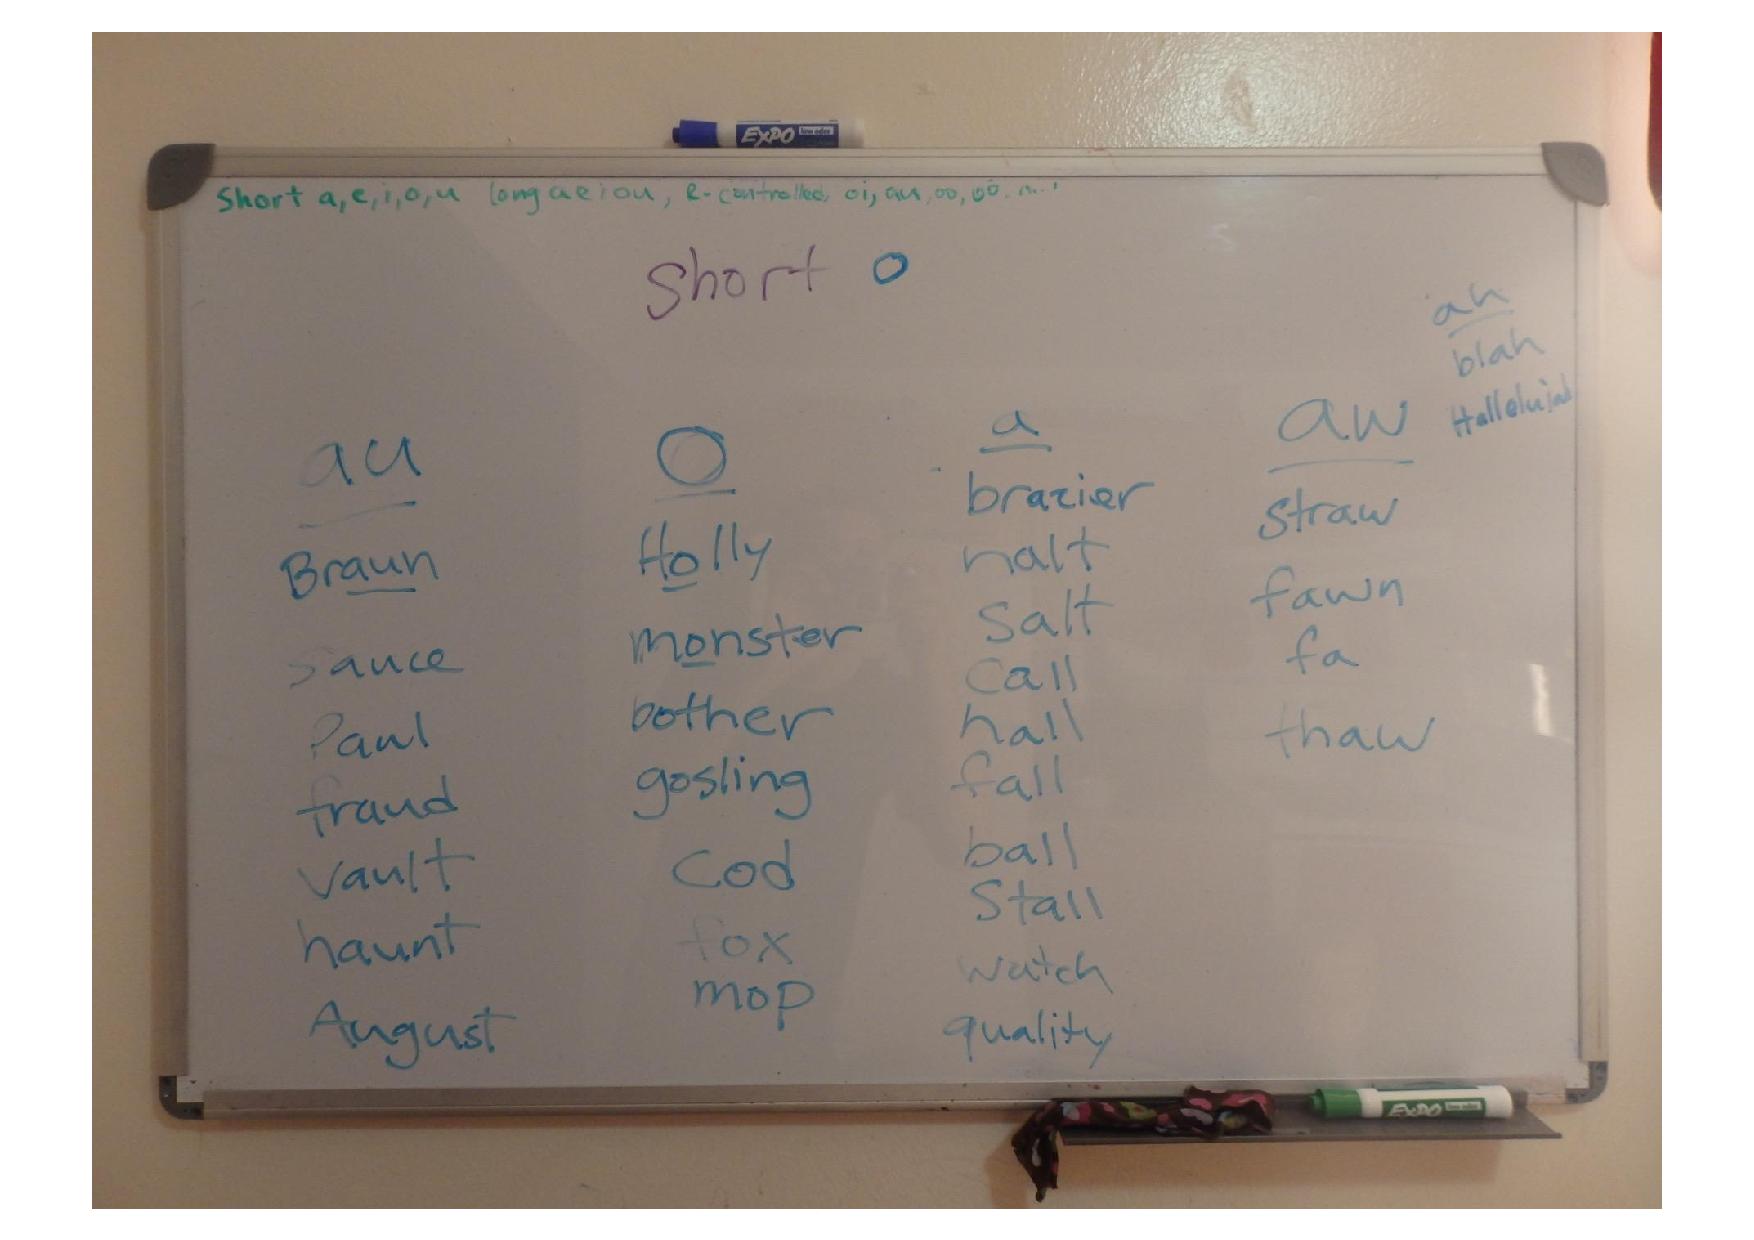 EXPO low odor
Short a,e,i,o,u long a e i o u, R-controlled, oi, au, oo, oo
Short o
au
Braun
sauce
Paul
fraud
vault
haunt
August
O
Holly
monster
bother
gosling
Cod
fox
mop
a
brazier
halt
Salt
call
hall
fall
ball
Stall
watch
quality
aw
straw
fawn
fa
thaw
ah
blah
Hallelujah
EXPO low odor